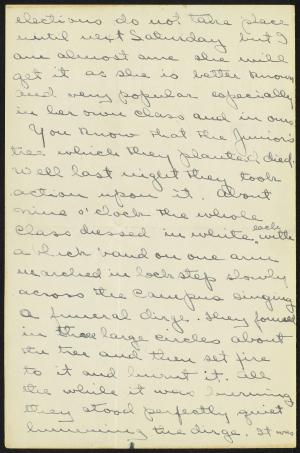 elections do not take place
until next Saturday but I
am almost sure she will
get it as she is better known
and very popular especially
in her own class and in ours
You know that the Junior's
tree which they planted died.
Well last night they took
action upon it. About
nine o'clock the whole
class dressed in white, each with
a black band on one arm
marched in lock step slowly
across the campus singing
a funeral dirge. They formed
in three large circles about
the tree and then set fire
to it and burnt it. All
the while it was burning
they stood perfectly quiet
humming the dirge. It was